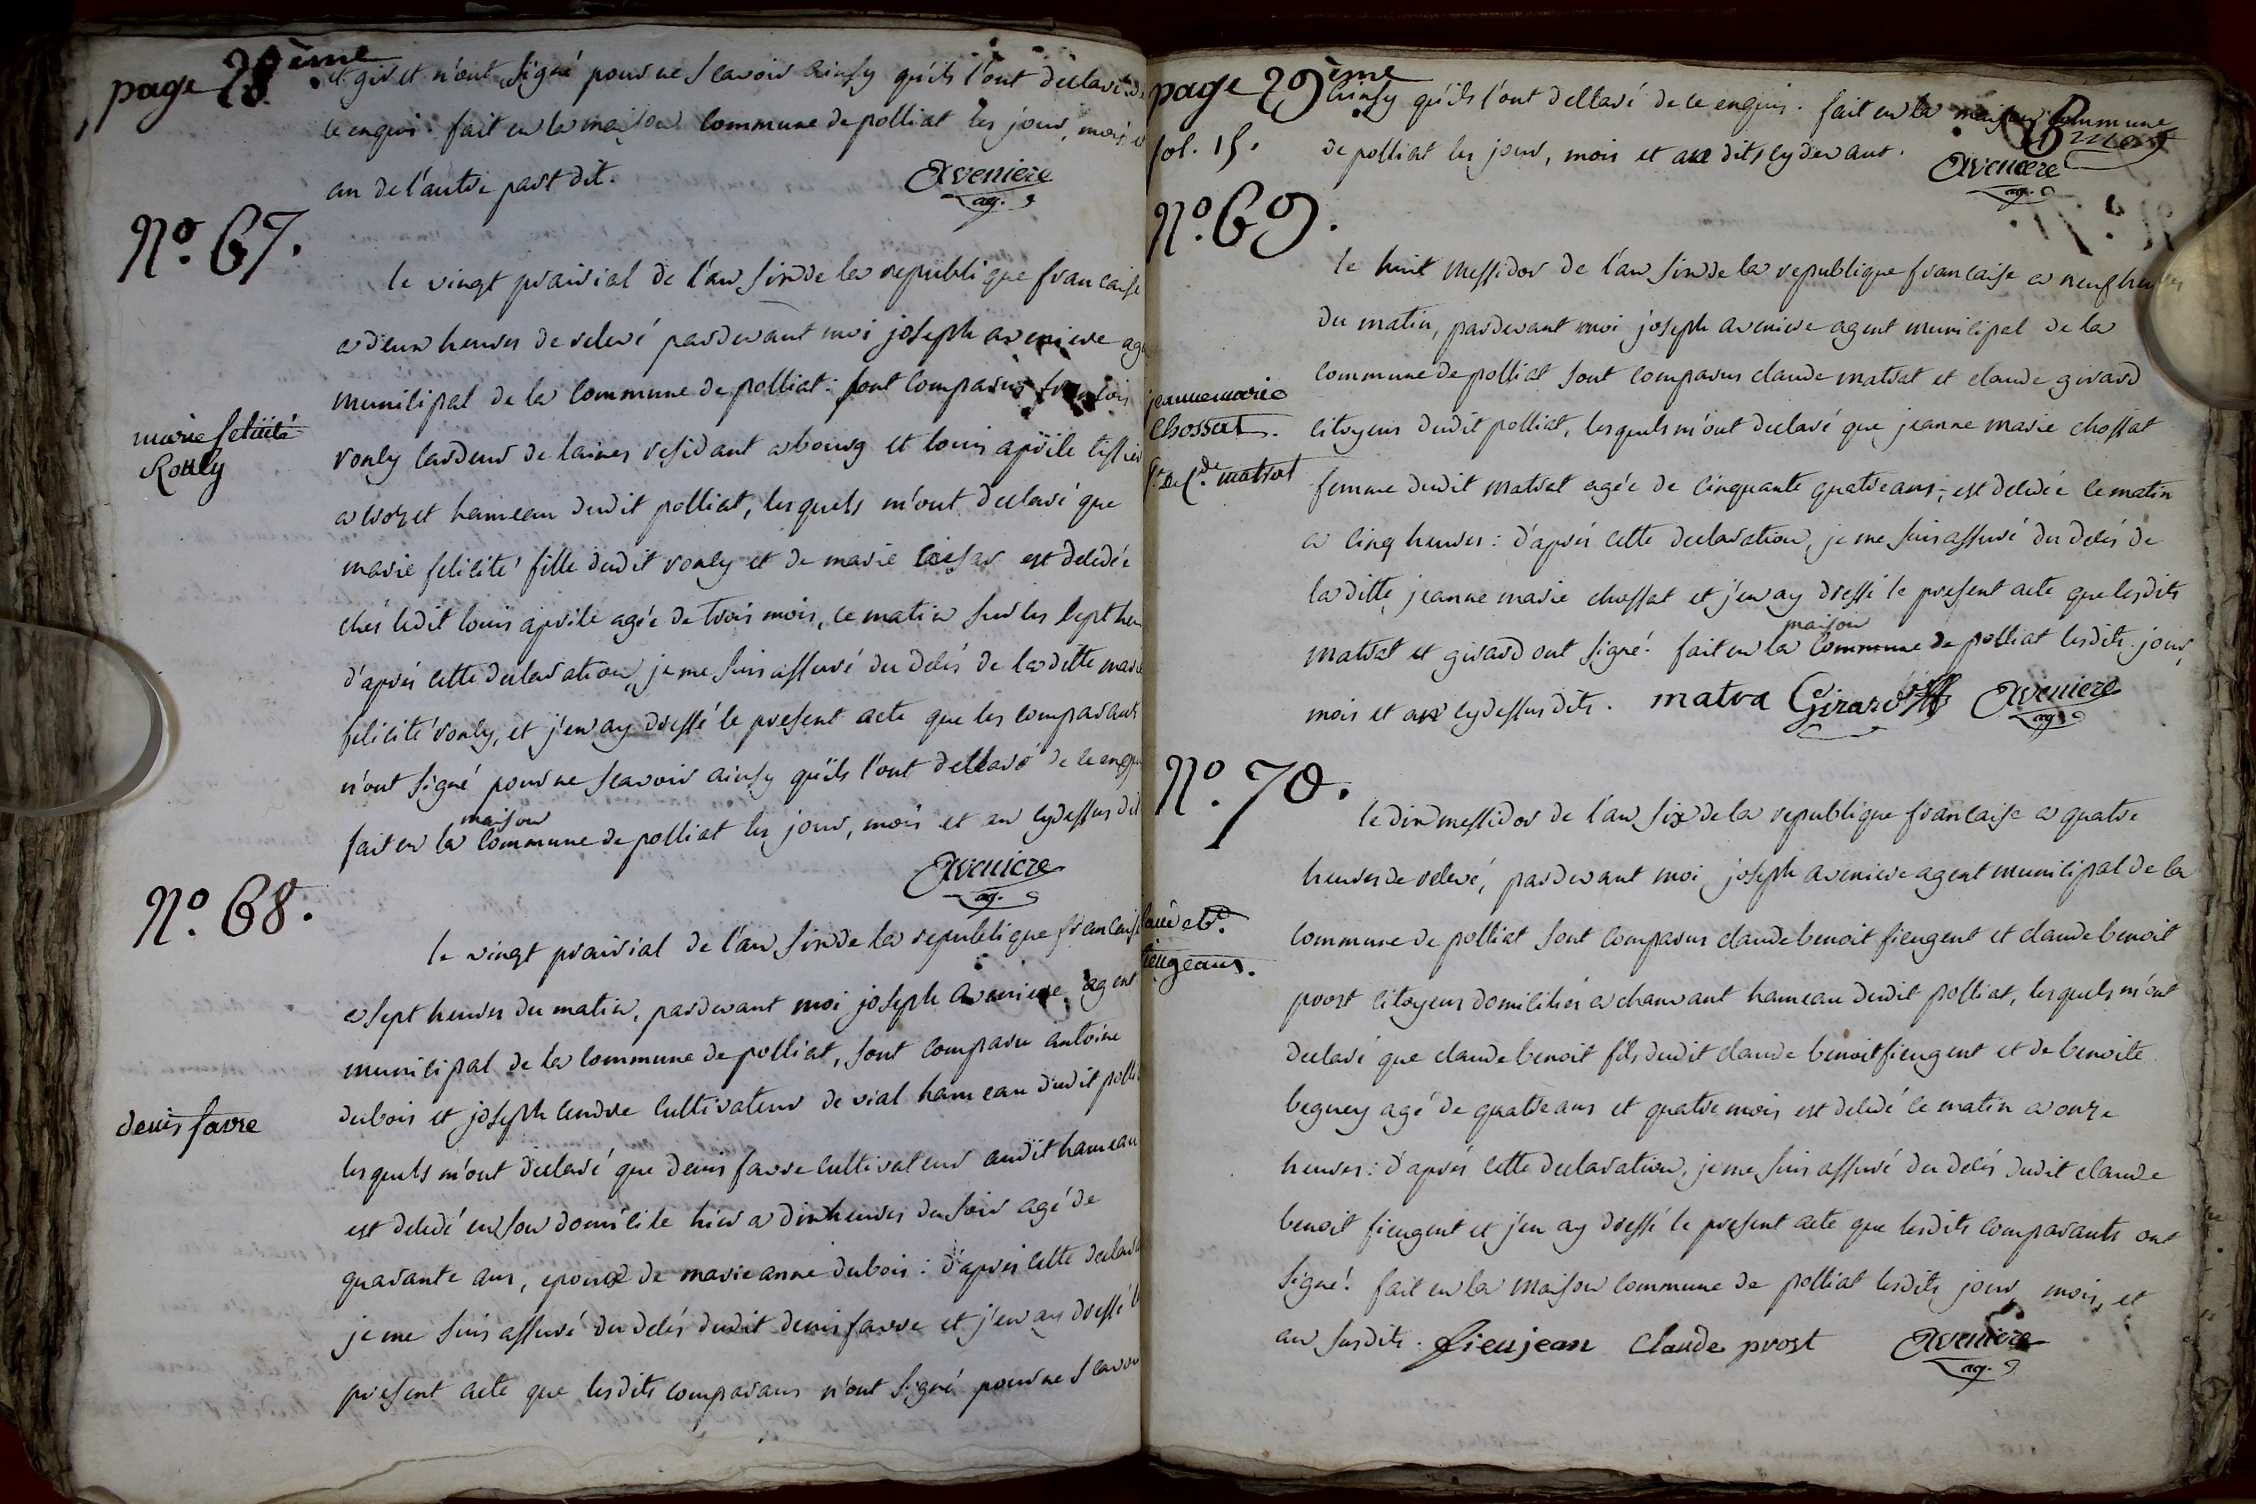 page 28ème
et giret n'ont signé pour ne scavoir ainsy qu'ils l'ont declaré de
ce enquis. fait en la maison commune de polliat les jour, mois et
an de l'autre part dit.
Aveniere
ag.
No. 67.
marie felicité
Rouly
le vingt prairial de l'an six de la republique francaise
a deux heures de relevé pardevant moi joseph aveniere agent
municipal de la commune de polliat: sont comparus francois
rouly cardeur de laines residant a bourg et louis aprile tissier
a hameau dudit polliat, lesquels m'ont declaré que
marie felicité fille dudit rouly et de marie est decedée
chés ledit louis aprile agée de trois mois, ce matin sur les sept heures
d'aprés cette declaration, je me suis assuré du decés de la ditte marie
felicité rouly, et j'en ay dressé le present acte que les comparants
n'ont signé pour ne scavoir ainsy qu'ils l'ont declaré de ce enquis
fait en la maison commune de polliat les jour, mois et an cydessus dit
Aveniere
ag.
No. 68.
denis favre
le vingt prairial de l'an six de la republique francaise
a sept heures du matin, pardevant moi joseph aveniere agent
municipal de la commune de polliat, sont comparu antoine
dubois et joseph cendre cultivateur de vial hameau dudit polliat
lesquels m'ont declaré que denis favre cultivateur audit hameau
est decedé en son domicile hier a dix heures du soir agé de
quarante ans, epoux de marie anne dubois: d'aprés cette declaration
je me suis assuré du decés dudit denis favre et j'en ay dressé le
present acte que lesdits comparans n'ont signé pour ne scavoir
page 29ème
fol. 15.
ainsy qu'ils l'ont declaré de ce enquis. fait en la maison commune
de polliat les jour, mois et an dits cydevant.
Aveniere
ag.
No. 69.
jeanne marie
Chossat.
fe. de Cde. matrat
le huit messidor de l'an six de la republique francaise a neuf heures
du matin, pardevant moi joseph aveniere agent municipal de la
commune de polliat sont comparus claude matrat et claude girard
citoyens dudit polliat, lesquels m'ont declaré que jeanne marie chossat
femme dudit matrat agée de cinquante quatre ans, est decedée ce matin
a cinq heures: d'aprés cette declaration, je me suis assuré du decés de
la ditte jeanne marie chossat et j'en ay dressé le present acte que lesdits
matrat et girard ont signé. fait en la maison commune de polliat lesdits jour,
mois et an cydessus dits. matra Girard Aveniere
ag.
No. 70.
claude bt.
fieugeans.
le dix messidor de l'an six de la republique francaise a quatre
heures de relevé, pardevant moi joseph aveniere agent municipal de la
commune de polliat sont comparus claude benoit fieugent et claude benoit
prost citoyens domiciliés a chanvant hameau dudit polliat, lesquels m'ont
declaré que claude benoit fils dudit claude benoit fieugent et de benoite
beguey agé de quatre ans et quatre mois est decedé ce matin a onze
heures: d'aprés cette declaration, je me suis assuré du decés dudit claude
benoit fieugent et j'en ay dressé le present acte que lesdits comparants ont
signé. fait en la maison commune de polliat lesdits jour, mois, et
an susdits. fieujean Claude prost Aveniere
ag.